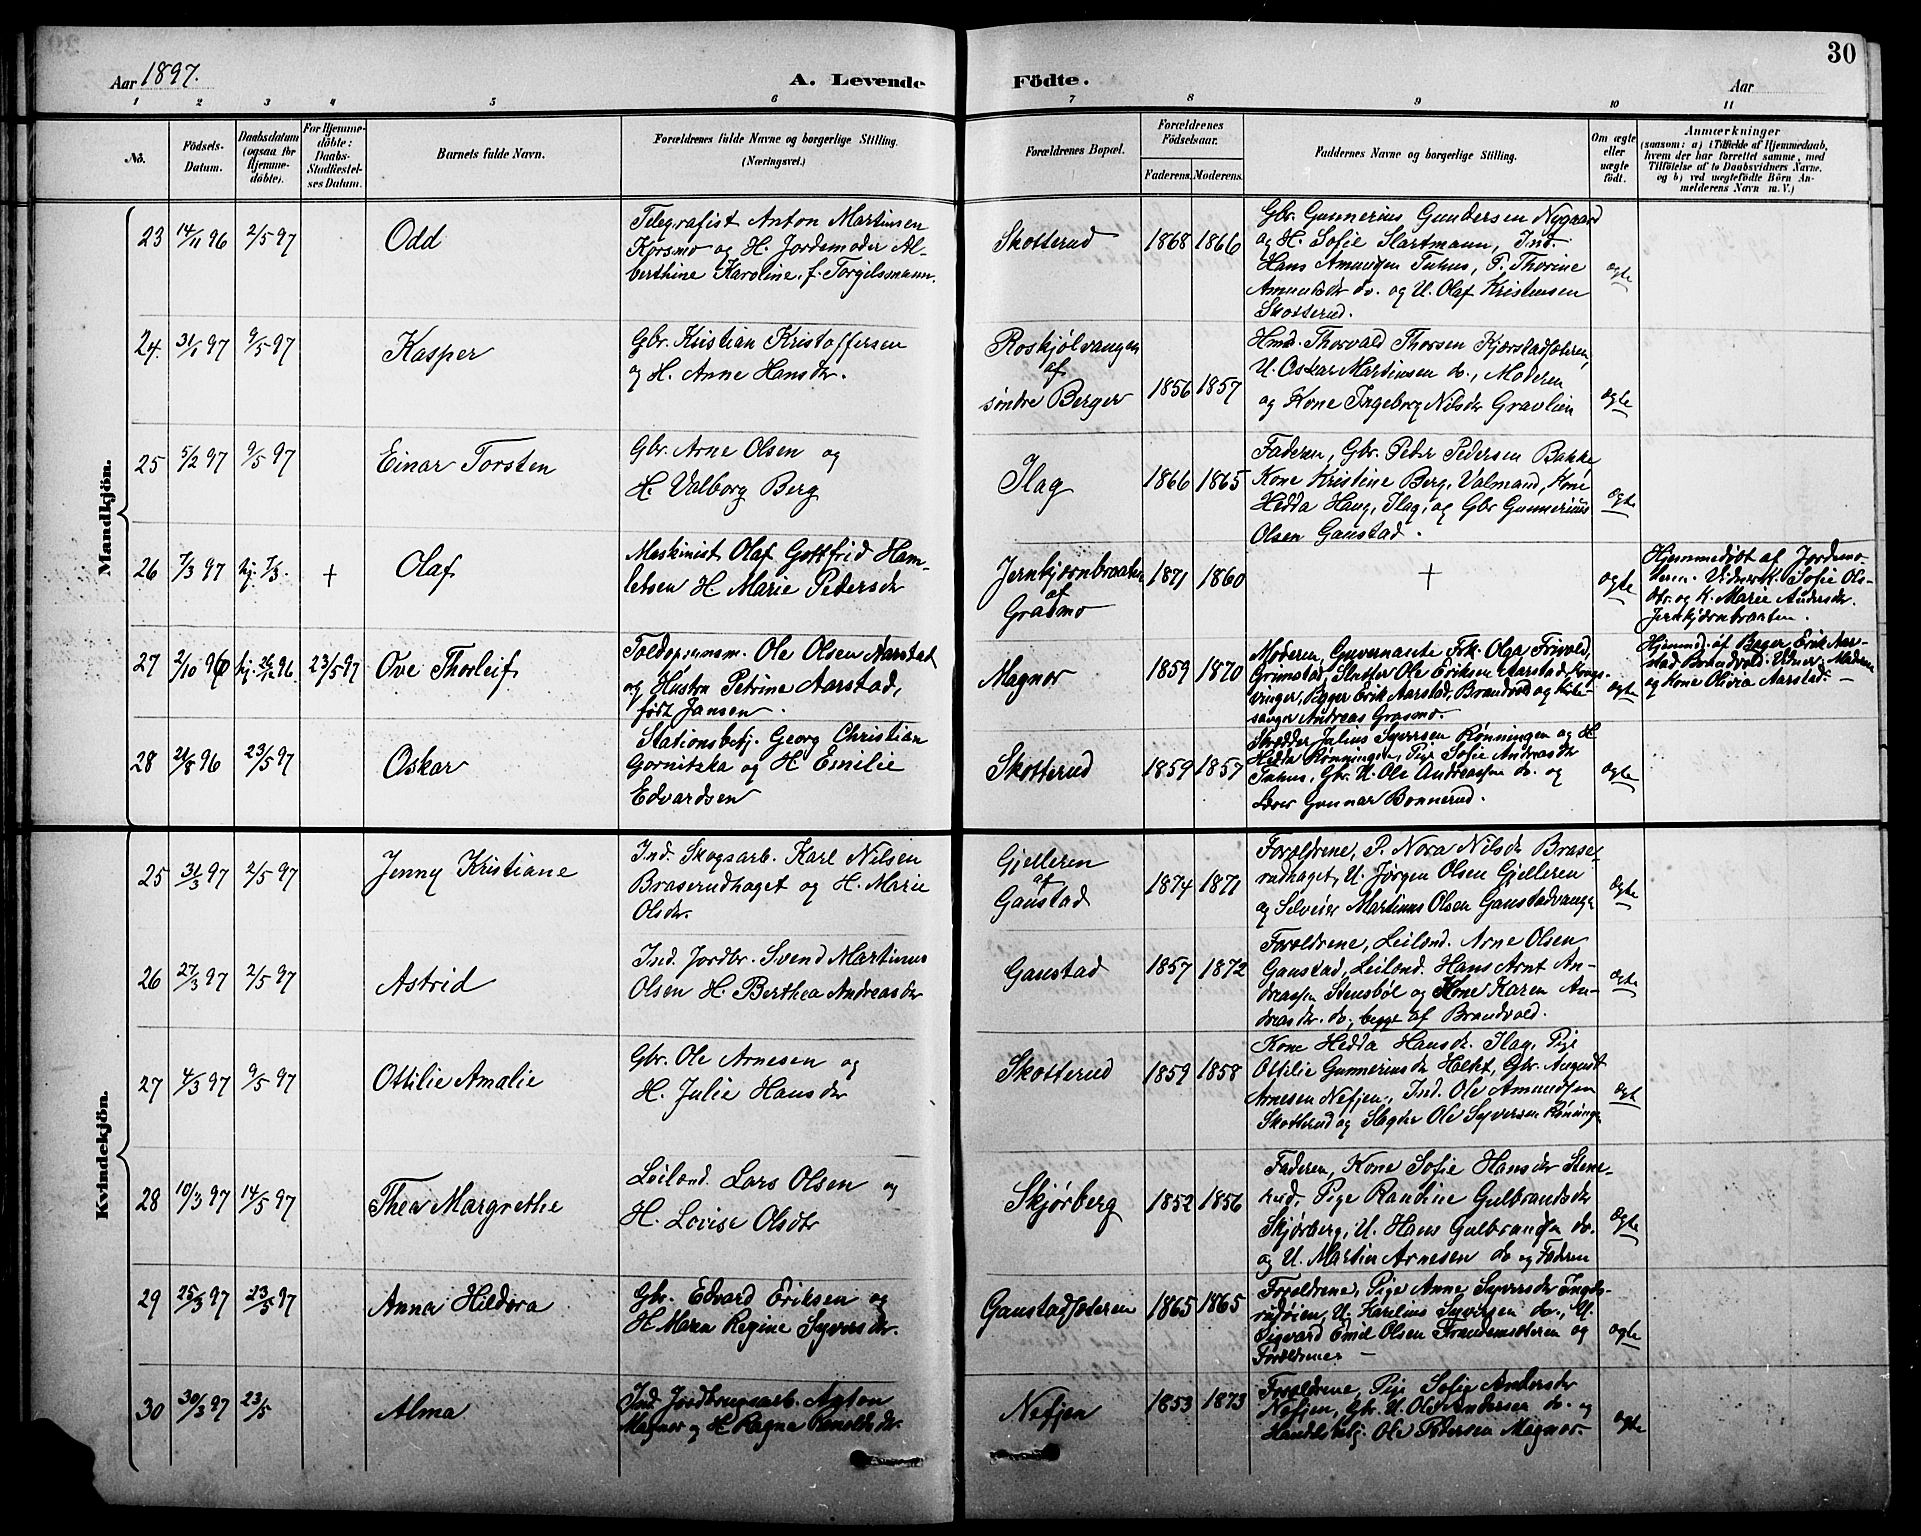 30
Aar 1897.
A. Levende Födte.
Aar
1 2 3 4 5 6 7 8 9 10 11
No.
Födsels-
Datum.
Daabsdatum
(ogsaa for
Hjemme-
döbte).
For Hjemme-
döbte:
Daabs-
Stadfæstel-
ses Datum.
Barnets fulde Navn.
Forældrenes fulde Navne og borgerlige Stilling.
(Næringsvei.)
Forældrenes Bopæl.
Forældrenes
Födselsaar.
Faderens. Moderens.
Faddernes Navne og borgerlige Stilling.
Om ægte
eller
uægte
født.
Anmærkninger
(saasom: a) i Tilfælde af Hjemmedaab,
hvem der har forrettet samme, med
Tilföielse af to Daabsvidners Navne.
og b) ved uægtefödte Börn An-
melderens Navn m. V.)
Mandkjön.
23 14/11 96 2/5 97 Odd
Telegrafist Anton Martinsen
Korsmo og H. Jordemoder Al-
berthine Karoline, f. Torgilsmann.
Skotterud 1868 1866
Gbr. Gunnerius Gundersen Nygaard
og H. Sofie Slartmann, Ind.
Hans Amundsen Tuhus, P. Thorine
Amundsdr do. og U. Olaf Kristensen
Skotterud.
ægte
24. 31/1 97 9/5 97 Kasper
Gbr. Kristian Kristoffersen
og H. Anne Hansdr.
Roskjølvangen
af
søndre Berger
1856 1857
Hmd. Thorvald Thorsen Kjærstadsæteren,
U. Oskar Martinsen do., Moderen
og Kone Ingeborg Nilsdr Gravlien
ægte
25 5/2 97 9/5 97 Einar Torsten
Gbr. Arne Olsen og
H. Valborg Berg
Ilag 1866 1865
Faderen, Gbr. Peder Pedersen Bakke
Kone Kristine Berg, Valmand, Kone
Hedda Haug, Ilag, og Gbr Gunnerius
Olsen Gaustad.
ægte
26 7/3 97 hj. 7/3. + Olaf
Maskinist Olaf Gottfrid Ham-
letsen H Marie Pedersdr
Jernhjørnbraaten
af
Grasmo
1871 1860
+
ægte
Hjemmedøbt af Jordemo-
deren. Vidner K. Sofie Ols-
dtr. og K. Marie Andersdr.
Jernhjørnbraaten.
27 2/10 96 23/5 97 Ove Thorleif
Toldopsynsm. Ole Olsen Aarstad
og Hustru Petrine Aarstad,
født Jansen.
Magnor 1859 1870
Moderen, Guvernante Frk. Olga Frivold,
Grimstad, Slutter Ole Eriksen Aarstad, Kongs-
vinger, Bager Erik Aarstad, Brandvold og Kirke-
sanger Andreas Grasmo.
ægte
Hjemmed. af Bager Erik Aar-
stad Brandvold. Vidner: Moderen
og Kone Olivia Aarstad. —
28 21/8 96 23/5 97 Oskar
Stationsbetj. Georg Christian
Gornitzka og H Emilie
Edvardsen
Skotterud 1859 1857
Skrædder Julius Syversen Rønningen og H
Hedda Rønningen, Pige Sofie Andreasdr
Tuhus, Gbr. U. Ole Andreassen do. og
Lærer Gunnar Bonnerud.
ægte
Kvindekjön.
25 31/3 97 2/5 97 Jenny Kristiane
Ind. Skogsarb. Karl Nilsen
Braserudhaget og H. Marie
Olsdr.
Gjelleren
af
Gaustad
1874 1871
Forældrene, P. Nora Nilsdr Brase-
rudhaget, U. Jørgen Olsen Gjelleren
og Selveier Martinus Olsen Gaustadvangen
ægte
26 27/3 97 2/5 97 Astrid
Ind. Jordbr. Svend Martinus
Olsen H. Berthea Andreasdr
Gaustad 1857 1872
Forældrene, Leilend. Arne Olsen
Gaustad, Leilend. Hans Arnt An-
dreassen Stensbøl og Kone Karen An-
dreasdr. do, begge af Brandvold.
ægte
27 4/3 97 9/5 97 Ottilie Amalie
Gbr. Ole Arnesen og
H. Julie Hansdr
Skotterud 1859 1858
Kone Hedda Hansdr. Ilag, Pige
Ottilie Gunneriusdr Holtet, Gbr. August
Arnesen Nefjen, Ind. Ole Amundsen
Skotterud og Slagter Ole Syversen Rønningen
ægte
28 10/3 97 14/5 97 Thea Margrethe
Leilænd. Lars Olsen og
H. Lovise Olsdtr
Skjørberg 1852 1856
Faderen, Kone Sofie Hansdr Stene-
rud, Pige Randine Gulbrandsdr
Skjørberg, U. Hans Gulbrandsen do.
og U. Martin Arnesen do og Faderen
ægte
29 25/3 97 23/5 97 Anna Hildora
Gbr. Edvard Eriksen og
H Maren Regine Syversdr.
Gaustadsæteren 1865 1865
Forældrene, Pige Anne Syversdr Engels-
rudøien, U. Karelius Syversen do., U.
Sigvard Emil Olsen Trandemsæteren og
Forældrene —
ægte
30 30/3 97 23/5 Alma
Ind. Jordbrugsarb. Anton
Magnor og H Ragna Arnoldsdr.
Nefjen 1853 1873
Forældrene, Pige Sofie Andersdr
Nefjen, Gbr. U. Ole Andersen do. og
Handelsbetj. Ole Pedersen Magnor.
ægte